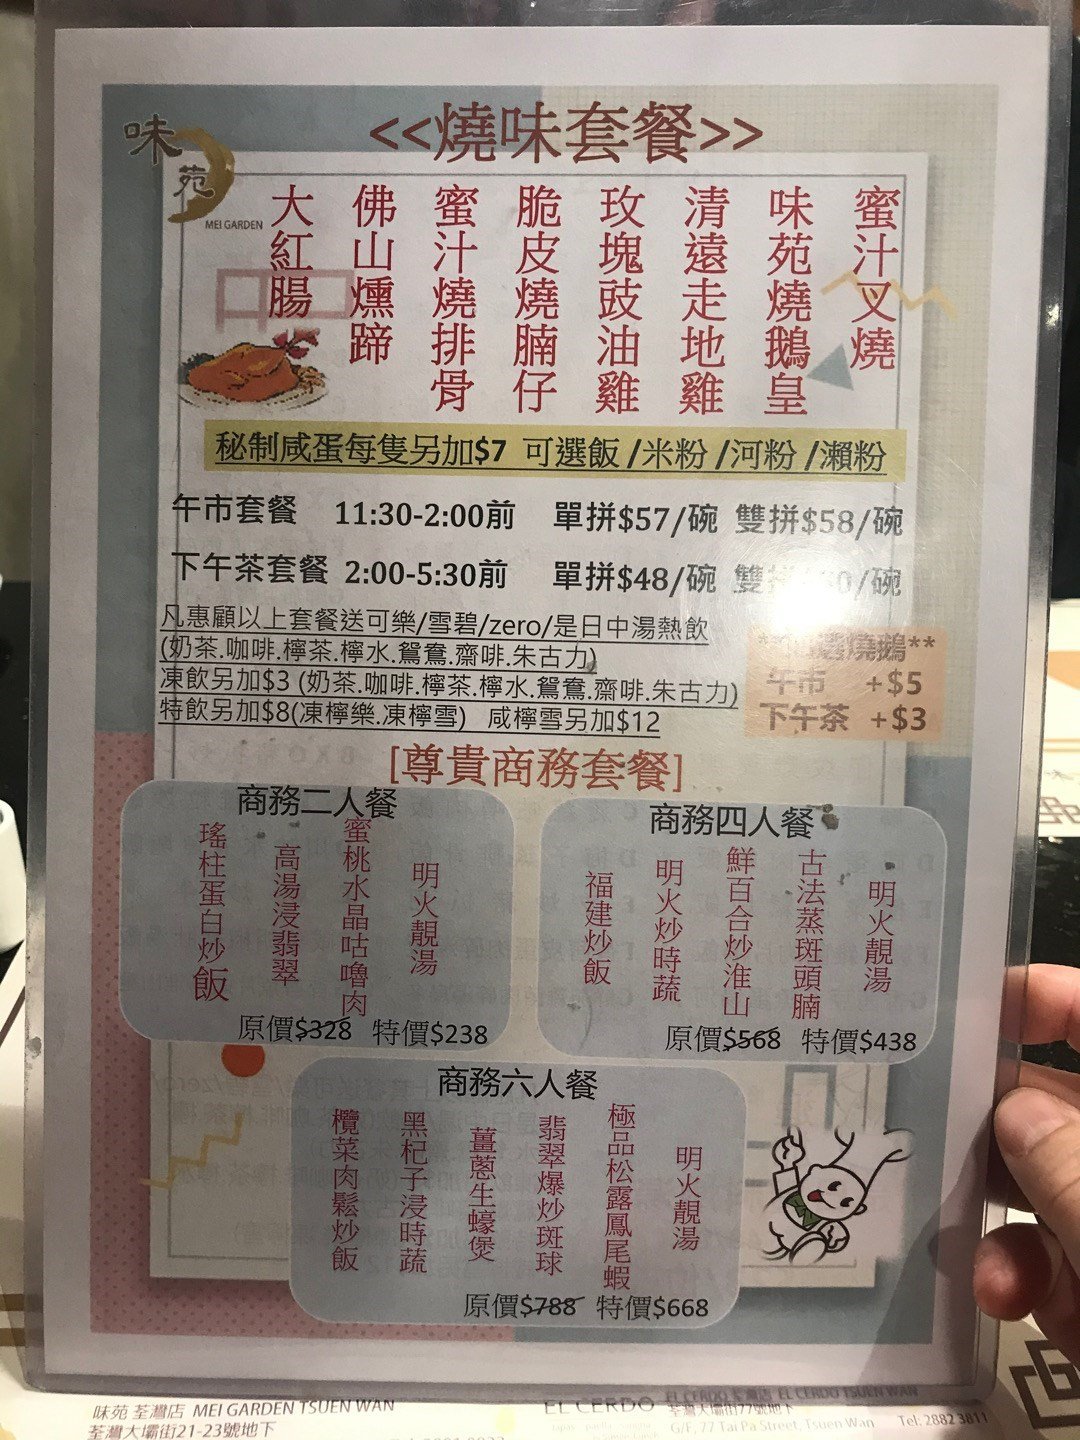 味苑
MEI GARDEN
<<燒味套餐>>
蜜汁叉燒
味苑燒鵝皇
清遠走地雞
玫瑰豉油雞
脆皮燒腩仔
蜜汁燒排骨
佛山燻蹄
大紅腸
秘制咸蛋每隻另加$7 可選飯/米粉/河粉/瀨粉
午市套餐 11:30-2:00前 單拼$57/碗 雙拼$58/碗
下午茶套餐 2:00-5:30前 單拼$48/碗 /碗
凡惠顧以上套餐送可樂/雪碧/zero/是日中湯熱飲
(奶茶.咖啡.檸茶.檸水.鴛鴦.齋啡.朱古力)
凍飲另加$3 (奶茶.咖啡.檸茶.檸水.鴛鴦.齋啡.朱古力)
特飲另加$8(凍檸樂.凍檸雪) 咸檸雪另加$12
燒鵝**
午市 +$5
下午茶 +$3
[尊貴商務套餐]
商務二人餐
明火靚湯
蜜桃水晶咕嚕肉
高湯浸翡翠
瑤柱蛋白炒飯
原價$328 特價$238
商務四人餐
明火靚湯
古法蒸斑頭腩
鮮百合炒淮山
明火炒時蔬
福建炒飯
原價$568 特價$438
商務六人餐
明火靚湯
極品松露鳳尾蝦
翡翠爆炒斑球
薑蔥生蠔煲
黑杞子浸時蔬
欖菜肉鬆炒飯
原價$788 特價$668
味苑 荃灣店 MEI GARDEN TSUEN WAN
荃灣大壩街21-23號地下
EL CERDO
EL CERDO 荃灣店 EL CERDO TSUEN WAN
荃灣大壩街77號地下
G/F, 77 Tai Pa Street, Tsuen Wan Tel: 2882 3811